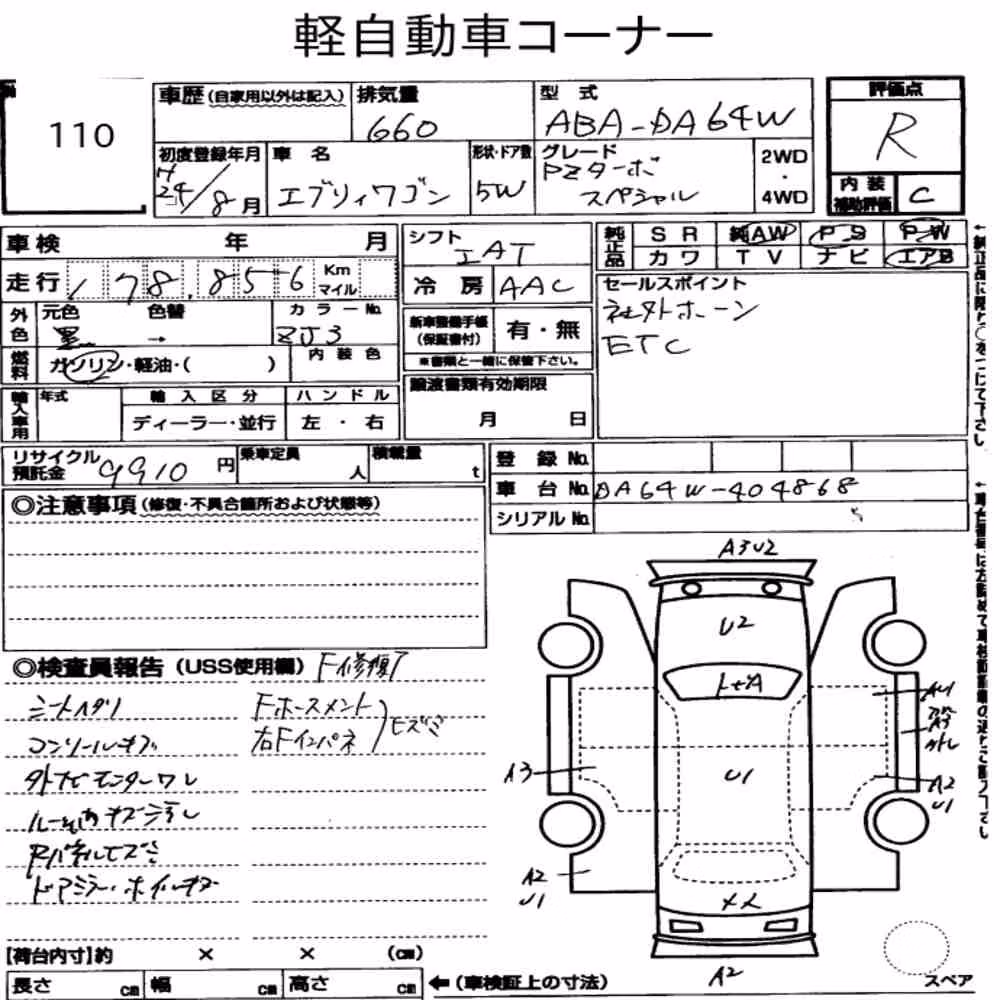 軽自動車コーナー
110
車歴 (自家用以外は記入) 排気量 660
型式 ABA-DA64W
評価点 R
初度登録年月 H24/8月
車名 エブリィワゴン
形状・ドア数 5W
グレード PZターボ スペシャル
2WD ・ 4WD
内装補助評価 C
車検 年 月
シフト IAT
純正品 SR 純AW PS PW
カワ TV ナビ エアB
走行 178,856 Km マイル
冷房 AAC
セールスポイント
社外ホーン
ETC
外色 元色 黒 → 色替 カラーNo. ZJ3
新車整備手帳(保証書付) 有・無
※書類と一緒に保管下さい。
燃料 ガソリン・軽油・( ) 内装色
譲渡書類有効期限
月 日
輸入車用 年式 輸入区分 ハンドル
ディーラー・並行 左・右
リサイクル預託金 9910円 乗車定員 人 積載量 t
登録No.
車台No. DA64W-404868
シリアルNo.
◎注意事項 (修復・不具合箇所および状態等)
◎検査員報告 (USS使用欄) F修復ア
シートヘタリ Fホースメント
コンソールキズ 右Fインパネ ヒズミ
外ナビモニターワレ
Rパネルヒズミ
ドアミラー・ホイルキズ
A3U2
U2
トビA
A3
A3
U1
A2
U1
A2
U1
メス
A2
スペア
[荷台内寸]約 × × (cm)
長さ cm 幅 cm 高さ cm
←(車検証上の寸法)